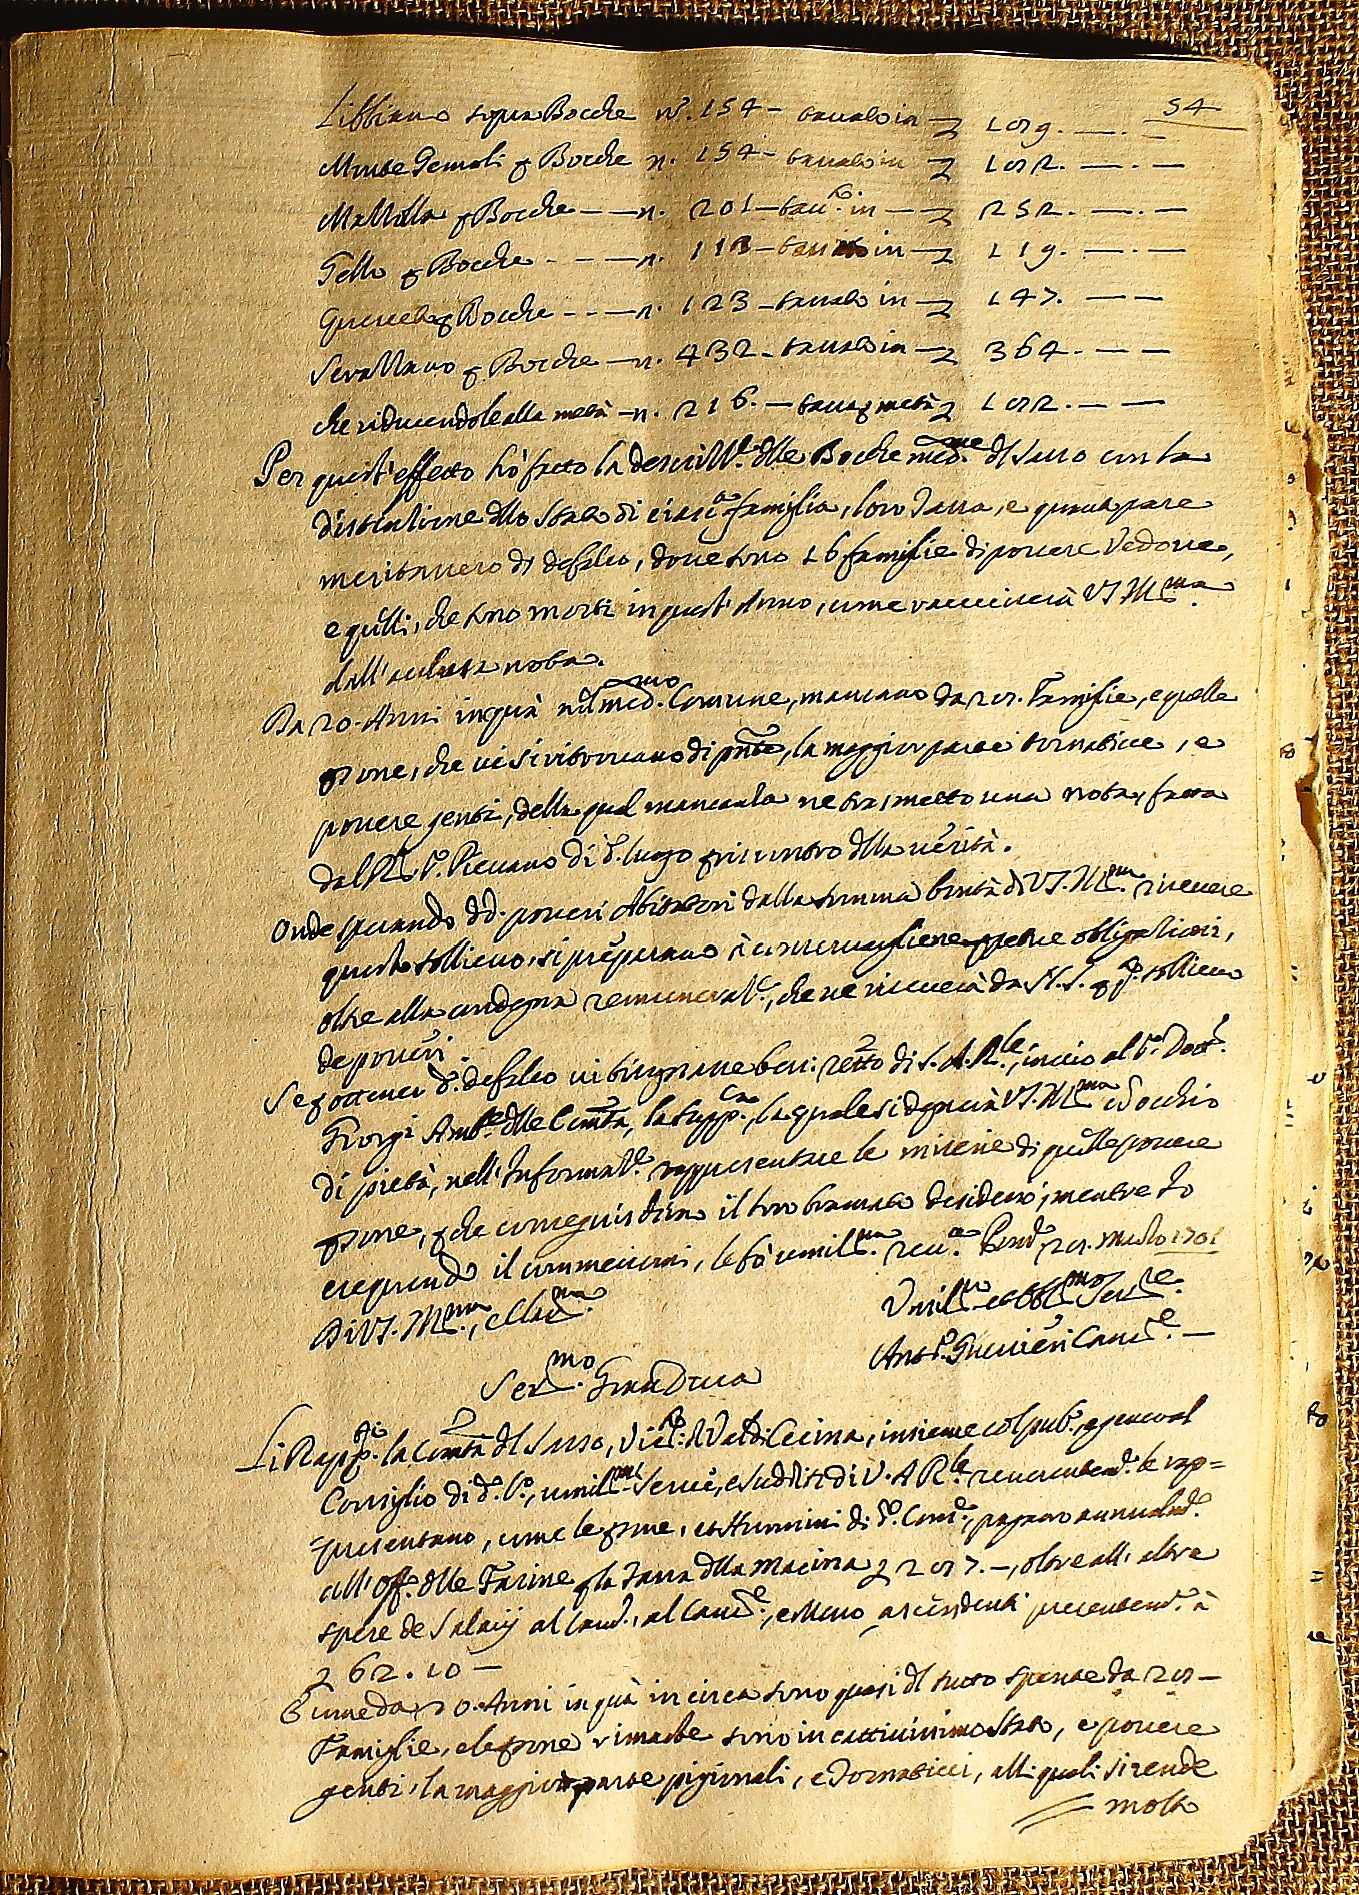 54
Libbiano sopra Bocche n.° 154 - tassato in — 109. —. —
Monte Gemoli p Bocche n. 154 - tassato in 102. —. —
p Bocche — n. 201 - tass.to in — 252. —. —
Gello p Bocche - - - n. 113 - in — 119. —. —
Querceto p Bocche - - - n. 123 - tassato in — 147. — —
Serazzano p Bocche — n. 432 - tassato in — 364. — —
che riducendole alla metà — n. 216. — tassa p metà 182. — —
Per quest'effetto hò fatto la descritt.e delle Bocche med.me del Sasso con la
distinzione dello Stato di ciasc.a famiglia, loro Tassa, e quanta pare
meritassero di defalco, dove sono 16 famiglie di povere Vedove,
e quelli, che sono morti in quest'Anno, come raccoierà VS. Ill.ma
dall'acclusa nota.
Da 20. Anni in quà nel med.mo Comune, mancano da 25. Famiglie, e quelle
psone, che vi si ritrovano di pnte, la maggior parte è tornaticce, e
povere genti, della qual mancanza ne trasmetto una nota, fatta
dal R. P. Pievano di d. luogo p riscontro della verità.
Onde sperando dd. poveri Abitatori dalla somma bontà di VS. Ill.ma ricevere
questo sollievo, si preparano à conservagliene obligazioni,
oltre alla condegna remuneraz.e, che ne riceverà da N. S. p q.° sollievo
de poveri.
Se p ottener d.° defalco vi bisognasse ben. retto di S. A. R.le, inviò al S.r Dott.
Giorgi Amb.re delle Comtà, la supp.ca, la quale si degnerà VS. Ill.ma Occhio
di pietà, nell'Informaz.e rappresentare le miserie di quelle povere
psone, p che conseguischino il loro bramato desiderio, mentre Io
eseguendo il commessomi, le fò umil.ma rev.a Pomd.e 25. marzo 1701
Di VS. Ill.ma, e Clar.ma
Umil.mo et Obbl.mo Ser.re
Ant.° Guerrieri Canc.re —
Ser.mo Gran Duca
Li Rapp.ti la Comtà del Sasso, Vic.to di Val di Cecina, insieme col pub.°, e general
Consiglio di d.° C.°, umil.mi Servi, e Sudditi di V. A. R.le reverentem.e le rap=
presentano, come le psone, et Huomini di d.° Com.e, pagano annualm.e
all'Off.° delle Farine p la Tassa della Macina 2257. —, oltre all'altre
spese de Salarij al Cam.°, al Canc.re, e Messo ascendenti presentem.e à
262. 10 —
E come da 20. Anni in quà in circa sono quasi del tutto spente da 25 —
Famiglie, e le psone rimaste sono in cattivissimo Stato, e povere
genti, la maggior parte pigionali, e Tornaticci, alli quali si rende
molto